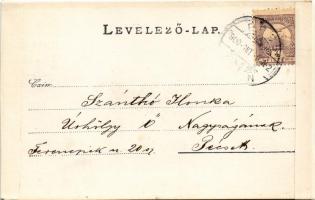 LEVELEZŐ-LAP.
Czím:
Szánthó Ilonka
Úrhölgy Ő Nagyságának
Ferencziek u. 20 sz.
Pécsett